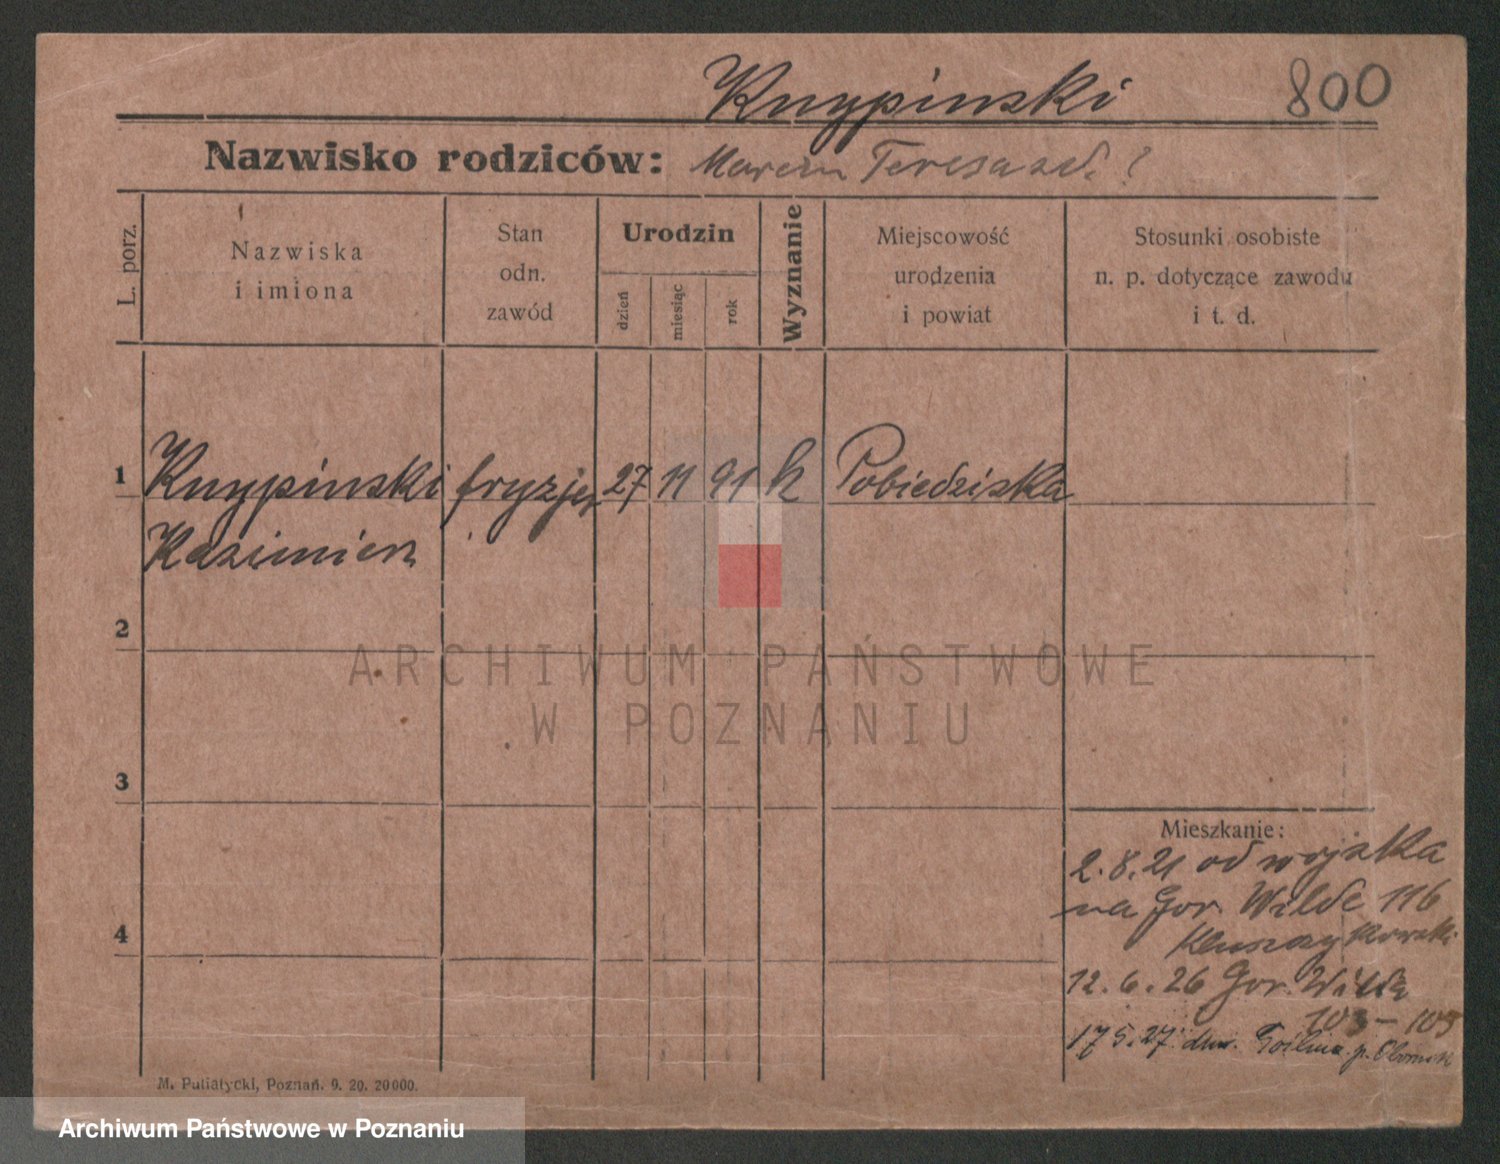 Knypinski 800
Nazwisko rodziców: Marcin Teresa zd. ?
L. porz.
Nazwiska
i imiona
Stan
odn.
zawód
Urodzin
dzień
miesiąc
rok
Wyznanie
Miejscowość
urodzenia
i powiat
Stosunki osobiste
n. p. dotyczące zawodu
i t. d.
1 Knypinski fryzjer 27 11 91 k Pobiedziska
Kazimierz
2
3
4
ARCHIWUM PAŃSTWOWE
W POZNANIU
Mieszkanie:
2.8.21 od wojska
na Gor. Wilde 116
12.6.26 Gor. Wilda
103-105
17 5.27.
M. Putiatycki, Poznań. 9. 20. 20000.
Archiwum Państwowe w Poznaniu